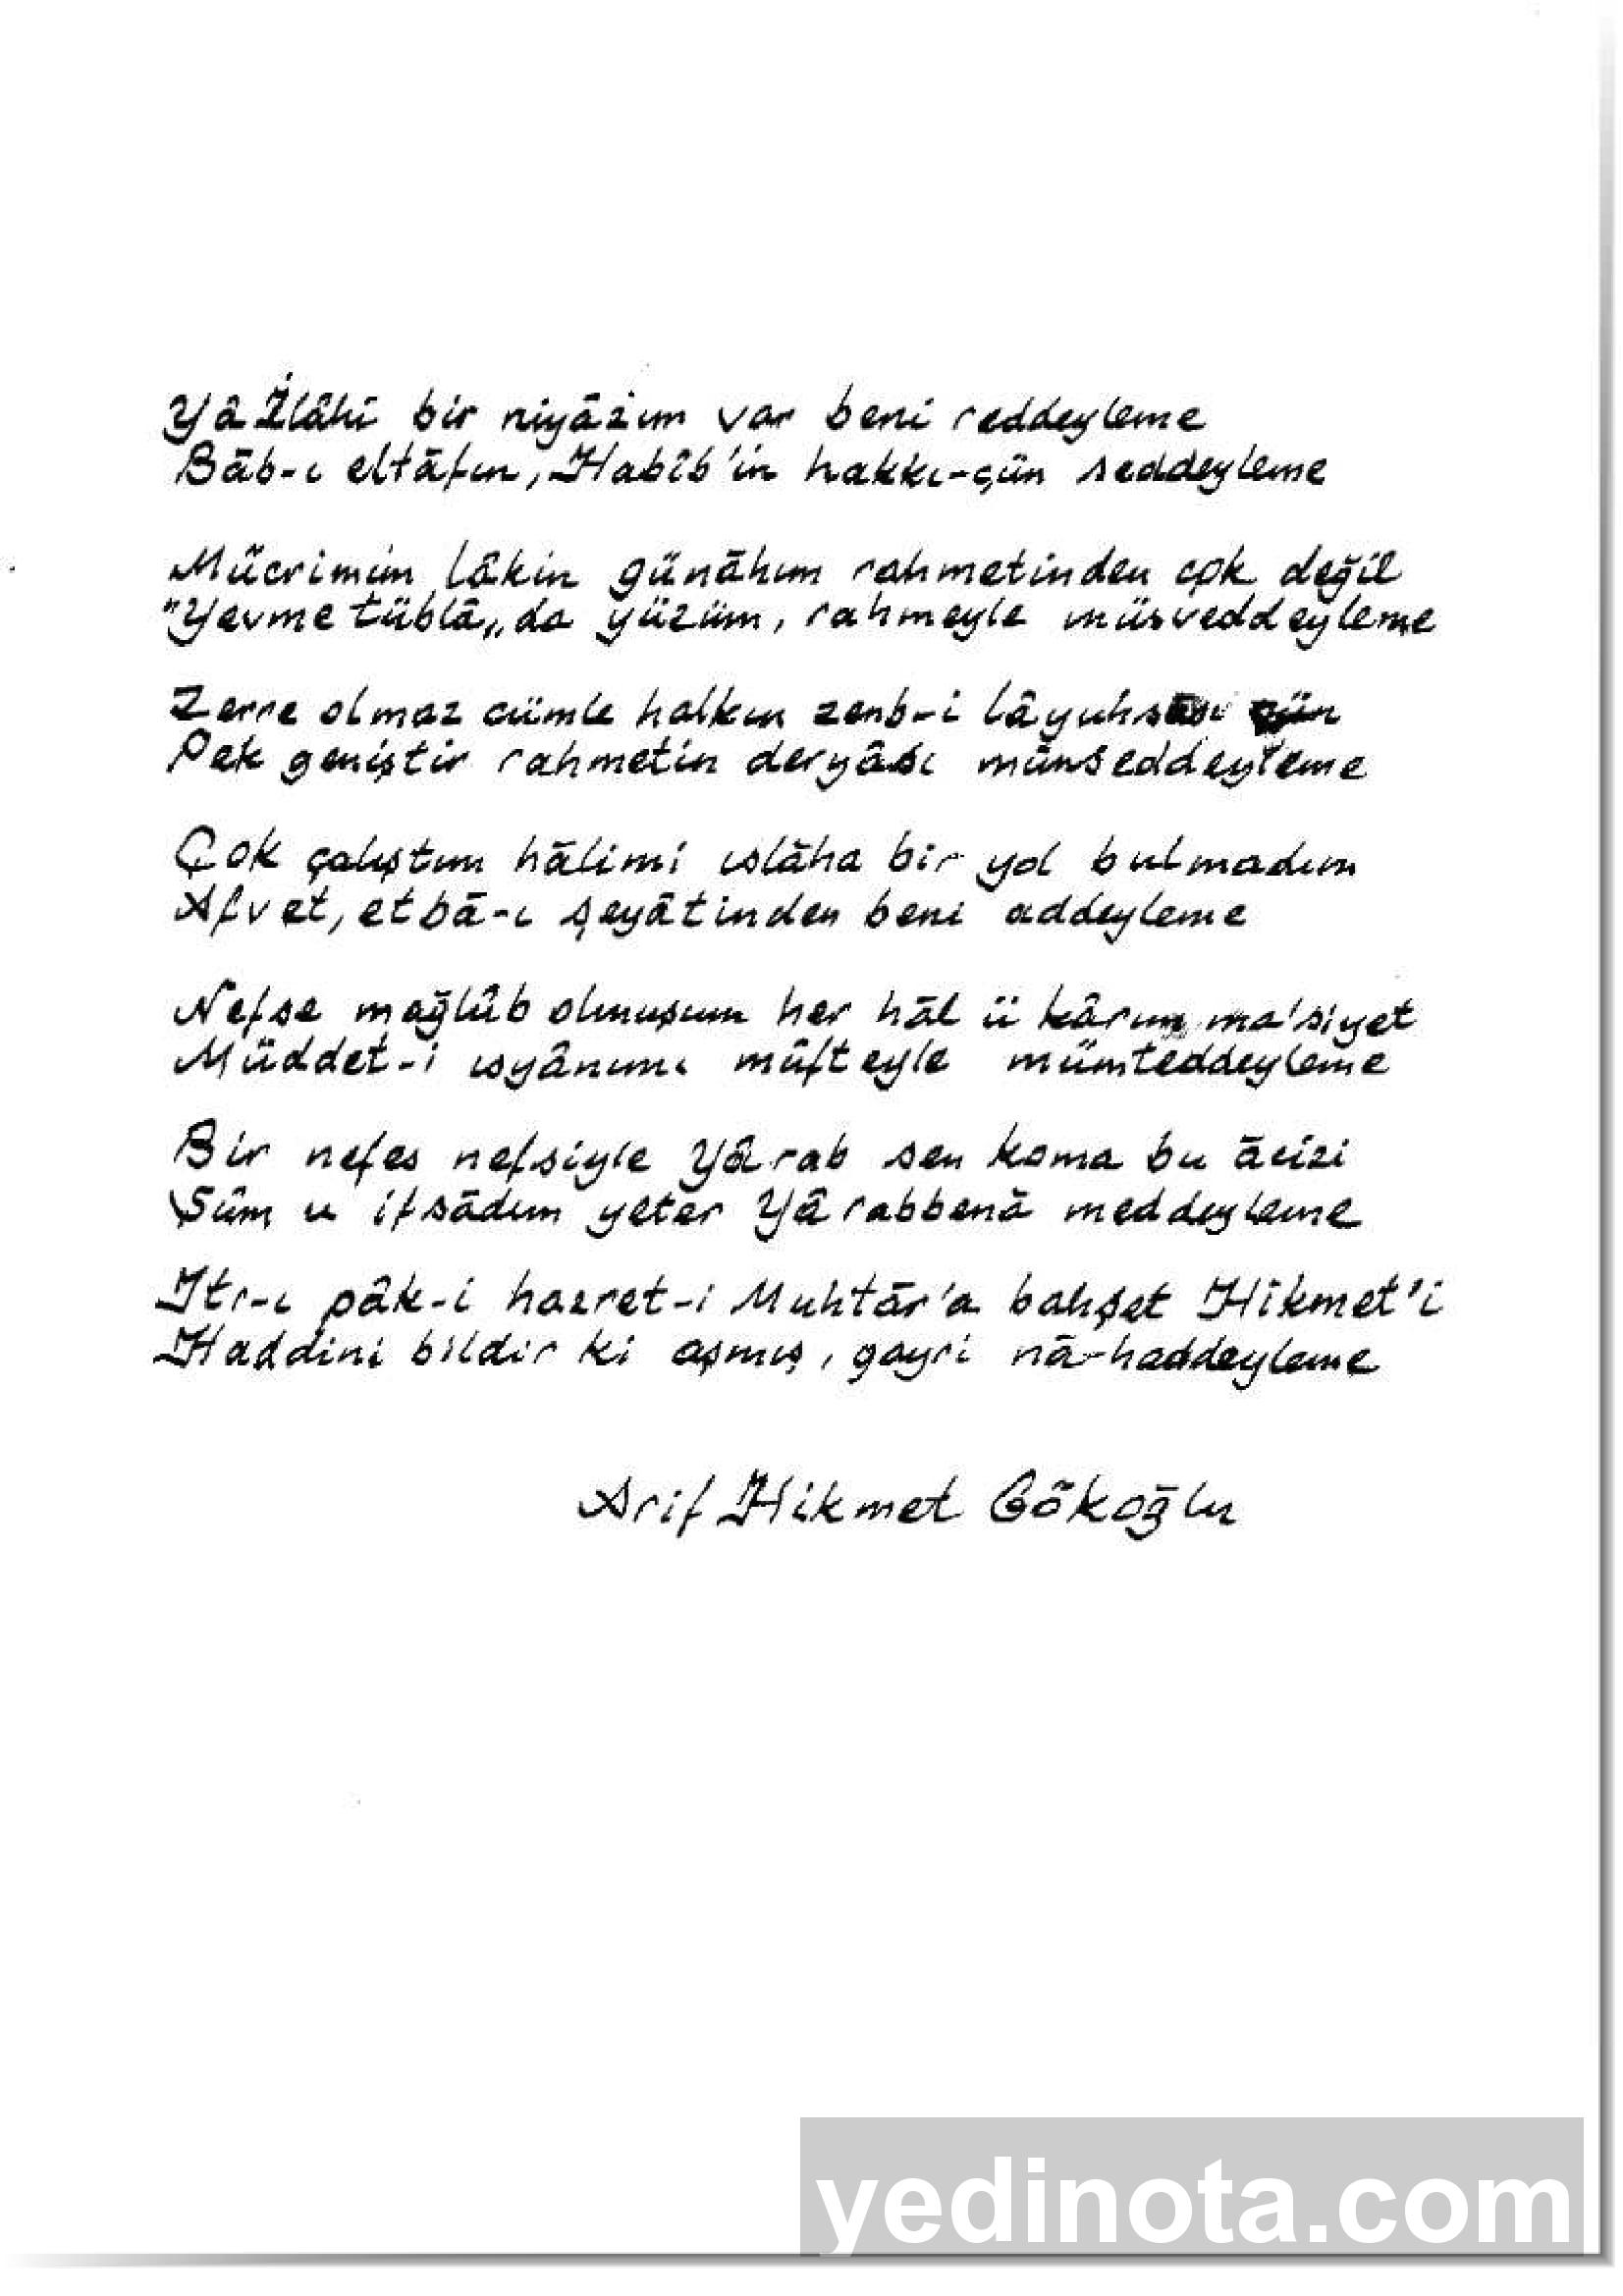 Yâ İlâhî bir niyâzım var beni reddeyleme
Bâb-ı eltâfın, Habîb'in hakkı-çün seddeyleme
Mücrimim lâkin günâhım rahmetinden çok değil
"Yevme tüblâ„da yüzüm, rahmeyle müsveddeyleme
Zerre olmaz cümle halkın zenb-i
Pek geniştir rahmetin deryâsı münseddeyleme
Çok çalıştım hâlimi ıslâha bir yol bulmadım
Afvet, etbâ-ı şeyâtinden beni addeyleme
Nefse mağlûb olmuşum her hâl ü kârım ma'siyet
Müddet-i ısyânımı mûfteyle mümteddeyleme
Bir nefes nefsiyle Yârab sen koma bu âcizi
Şûm u ifsâdım yeter Yâ rabbenâ meddeyleme
Itr-ı pâk-i hazret-i Muhtâr'a bahşet Hikmet'i
Haddini bildir ki aşmış, gayri nâ-haddeyleme
Arif Hikmet Gökoğlu
yedinota.com